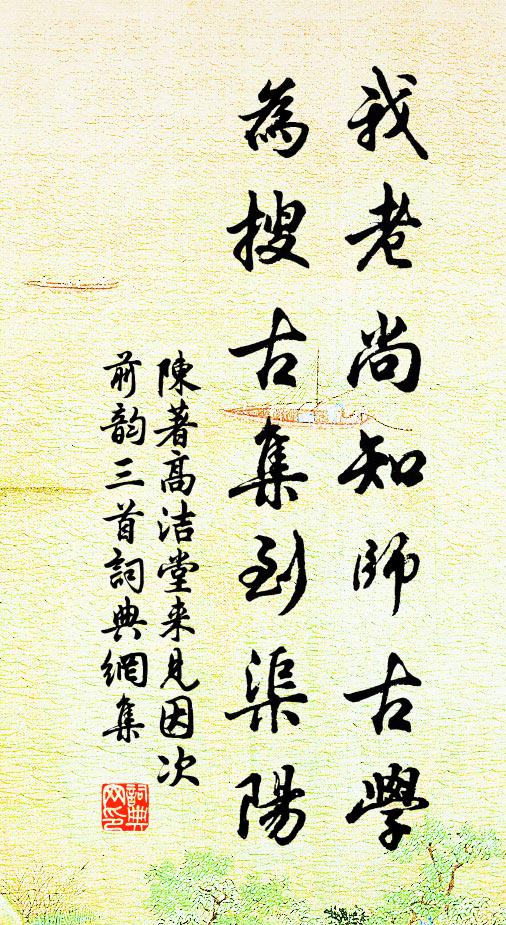 我老尚知師古學
為搜古集到渠陽
陳著高洁堂来見因次
前韵三首詞典網集
詞典网印